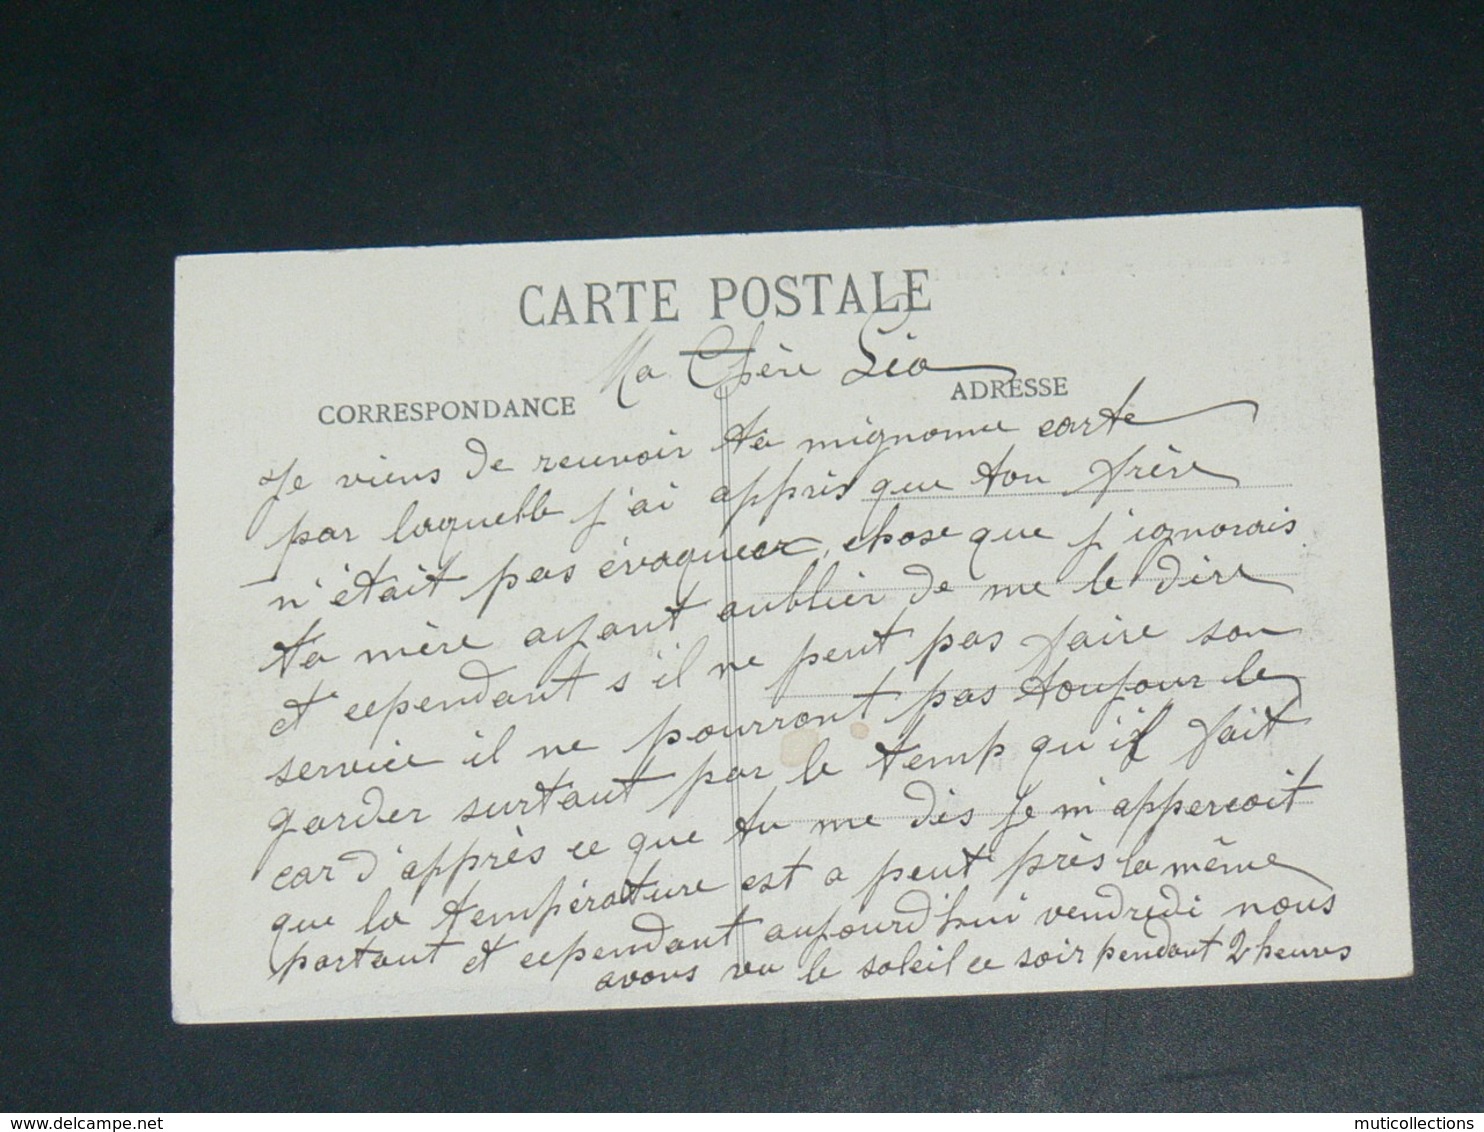 CARTE POSTALE
Ma Chère Léa
CORRESPONDANCE
ADRESSE
Je viens de reuvoir ta mignonne carte
par laquelle j'ai apprès que ton frère
n'était pas évaqueer, chose que j'ignorais
ta mère ayant oublier de me le dire
et cependant s'il ne peut pas faire son
service il ne pourront pas toujour le
garder surtout par le temp qu'il fait
car d'apprès ce que tu me dis je m'apperçoit
que la température est a peut près la même
partout et cependant aujourd'hui vendredi nous
avons vu le soleil ce soir pendant 2 heures
muticollections